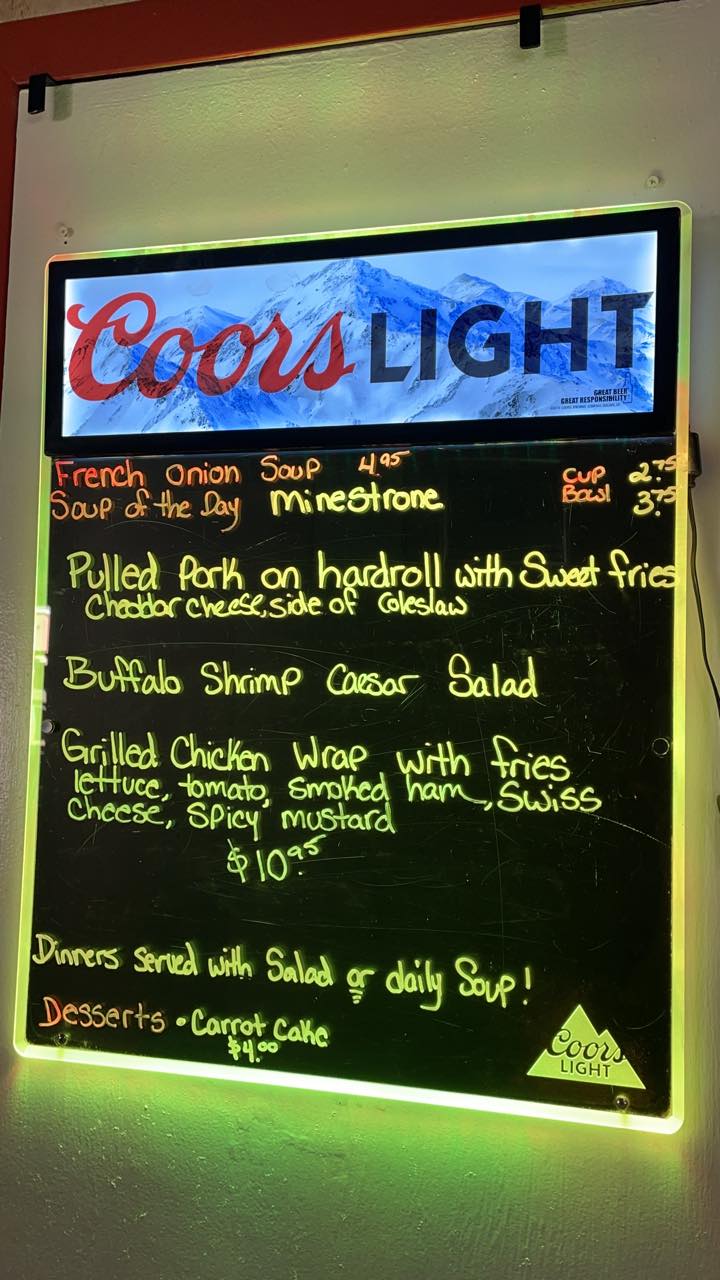 Coors LIGHT
GREAT BEER
GREAT RESPONSIBILITY
French Onion Soup 4.95 Cup 2.75
Soup of the Day Minestrone Bowl 3.75
Pulled Pork on hardroll with Sweet fries
Cheddar cheese, side of Coleslaw
Buffalo Shrimp Caesar Salad
Grilled Chicken Wrap with fries
lettuce, tomato, smoked ham, Swiss
cheese, spicy mustard
$10.95
Dinners served with Salad or daily Soup!
Desserts • Carrot Cake
$4.00
Coors
LIGHT